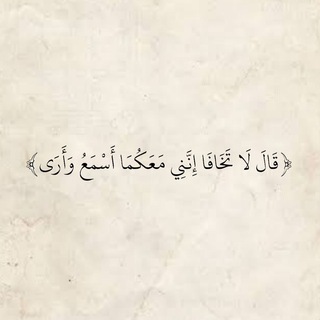 ﴿قَالَ لَا تَخَافَا إِنَّنِي مَعَكُمَا أَسْمَعُ وَأَرَى﴾